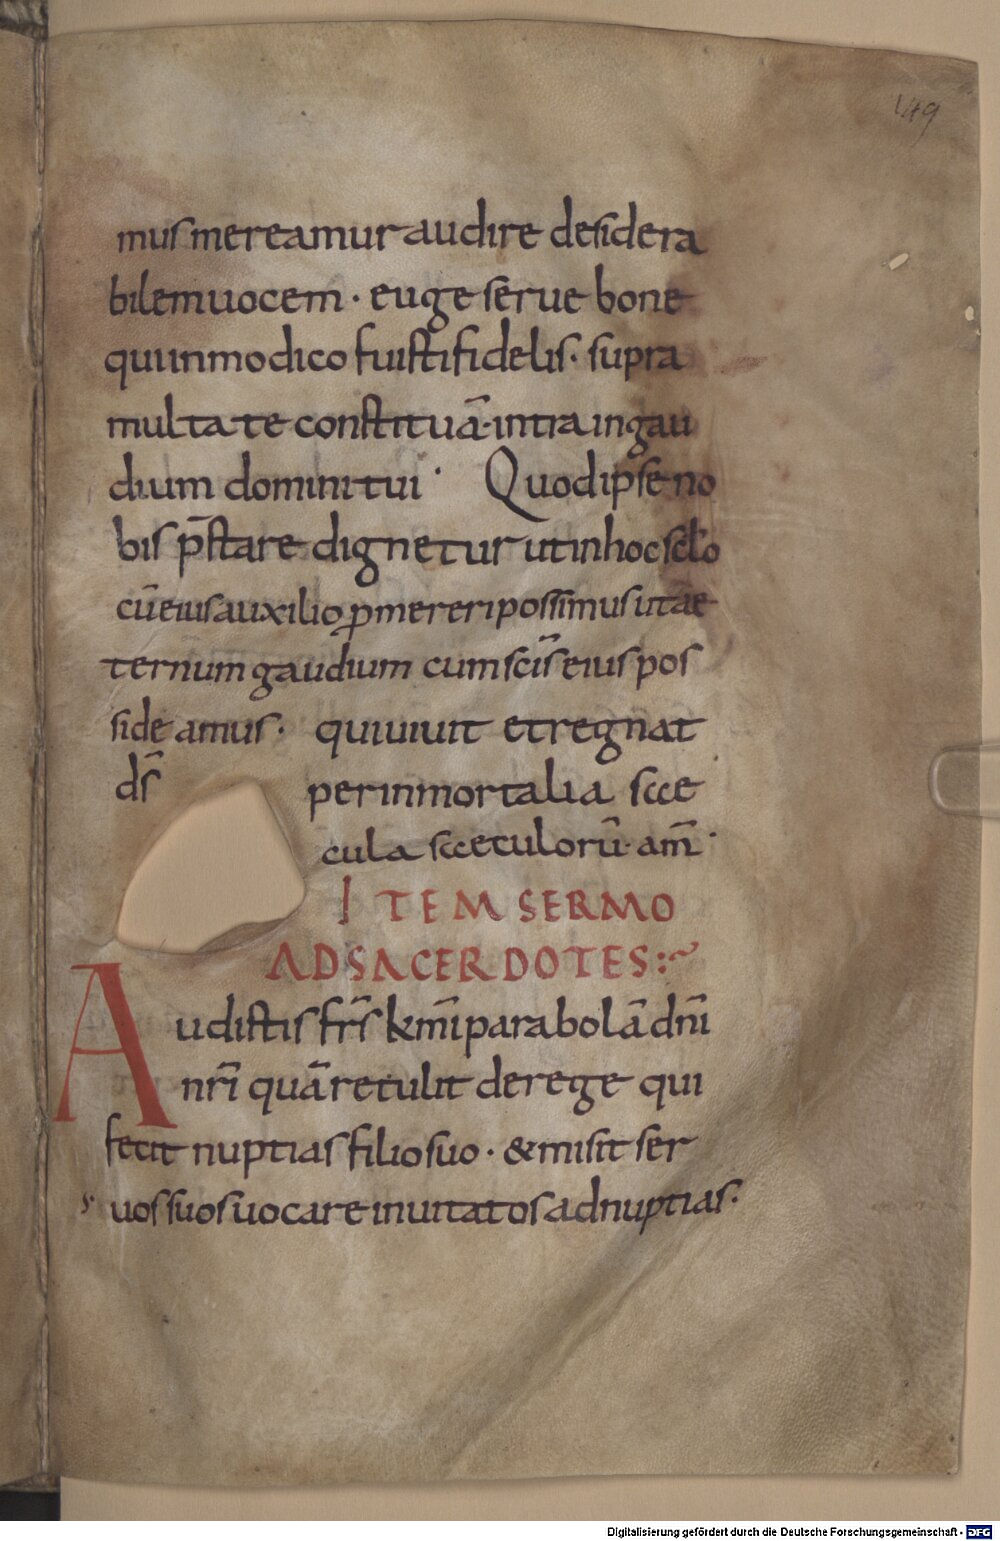 149
mus mereamur audire desidera
bilem uocem · euge serue bone
qui in modico fuisti fidelis · supra
multa te constituā · intra in gau
dium domini tui · Quod ipse no
bis p̄stare dignetur ut in hoc sclo
cū eius auxilio ꝓmereri possimus ut ae
ternum gaudium cum scīs eius pos
sideamus · qui uiuit et regnat
ds̄ per inmortalia scce
cula scceculorū · am̄ ·
ITEM SERMO
AD SACERDOTES :~
Audistis frs̄ km̄i parabolā dn̄i
nr̄i quā retulit de rege qui
fecit nuptias filio suo · & misit ser
uos suos uocare inuitatos ad nuptias ·
Digitalisierung gefördert durch die Deutsche Forschungsgemeinschaft - DFG